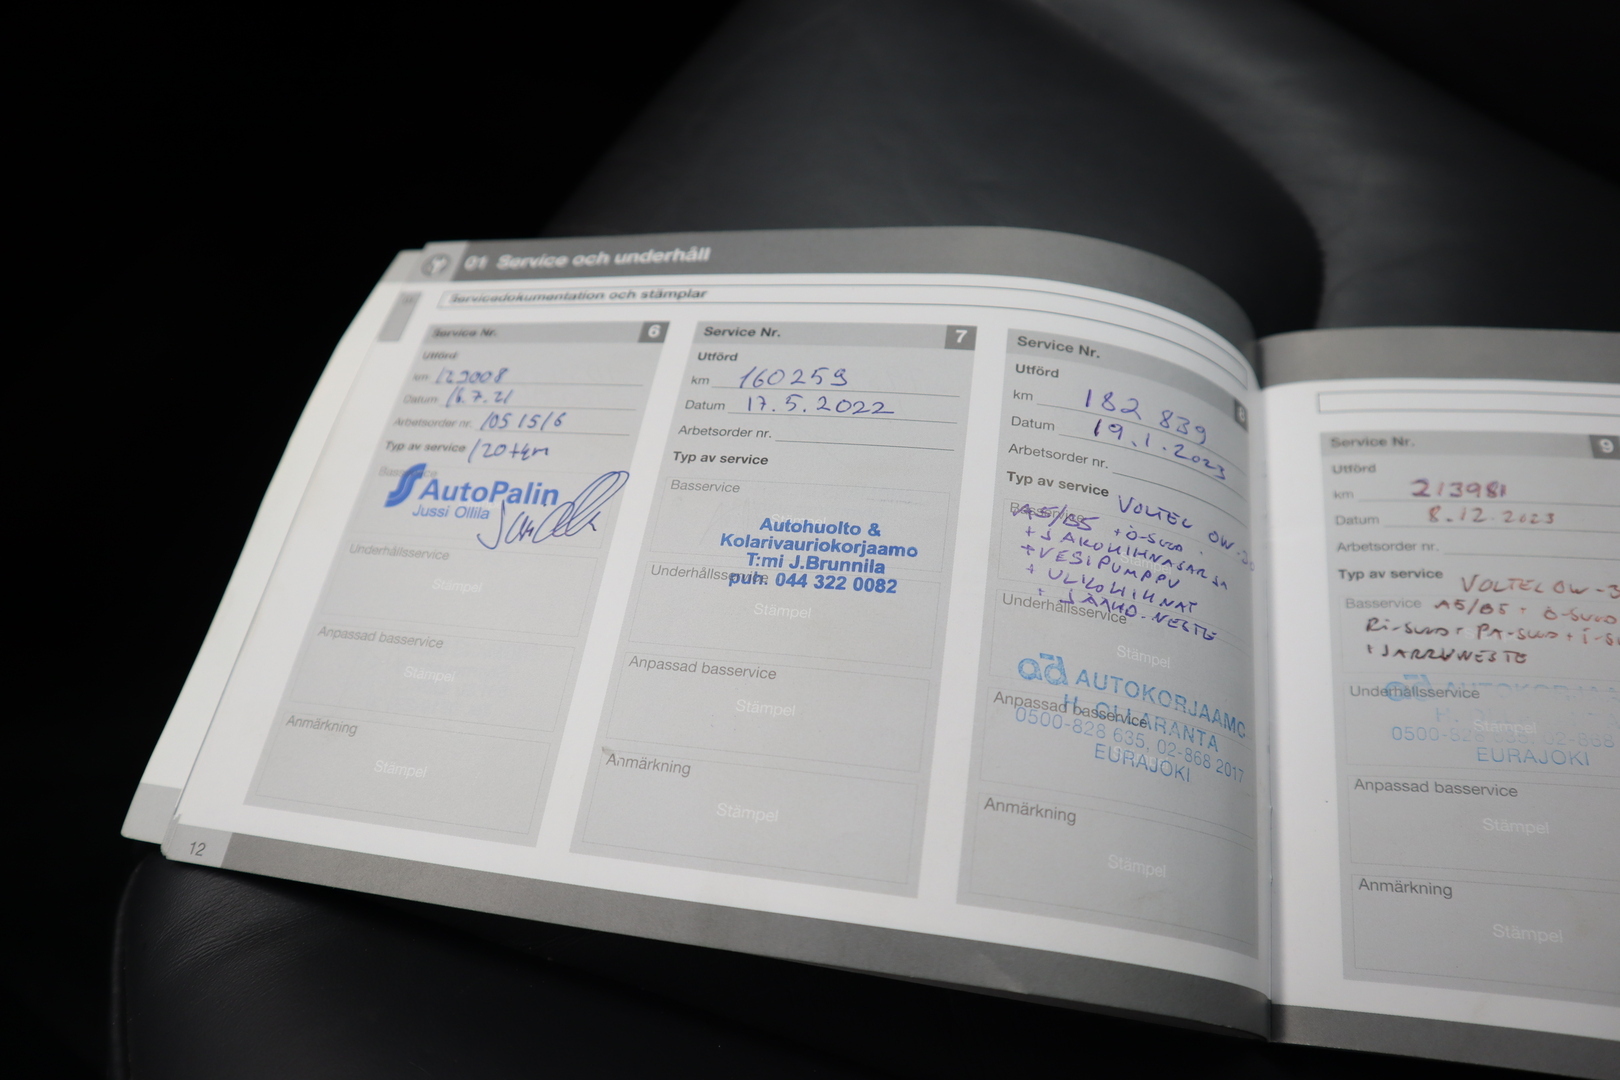 01 Service och underhåll
Servicedokumentation och stämplar
Service Nr. 6
Utförd
km 129008
Datum 16.7.21
Arbetsorder nr. 1051516
Typ av service 120tkm
Basservice
AutoPalin
Jussi Ollila
Underhållsservice
Stämpel
Anpassad basservice
Stämpel
Anmärkning
Stämpel
12
Service Nr. 7
Utförd
km 160259
Datum 17.5.2022
Arbetsorder nr.
Typ av service
Basservice
Stämpel
Autohuolto &
Kolarivauriokorjaamo
T:mi J.Brunnila
puh. 044 322 0082
Underhållsservice
Stämpel
Anpassad basservice
Stämpel
Anmärkning
Stämpel
Service Nr. 8
Utförd
km 182 839
Datum 19.1.2023
Arbetsorder nr.
Typ av service VOLTEL 0W-30
Basservice
A5/B5 + Ö-SUOD.
+ JAKOHIHNASARJA
+ VESIPUMPPU
+ ULKOHIHNAT
+ JÄÄHD.NESTE
Underhållsservice
Stämpel
ad AUTOKORJAAMO
H. OLLARANTA
0500-828 635, 02-868 2017
EURAJOKI
Anpassad basservice
Anmärkning
Stämpel
Service Nr. 9
Utförd
km 213981
Datum 8.12.2023
Arbetsorder nr.
Typ av service VOLTEL 0W-3
Basservice A5/B5 + Ö-SUOD
RI-SUOD + PA-SUOD + I-SU
+ JARRUNESTE
Underhållsservice
Stämpel
ad AUTOKORJAAM
0500-828 635, 02-868
EURAJOKI
Anpassad basservice
Stämpel
Anmärkning
Stämpel